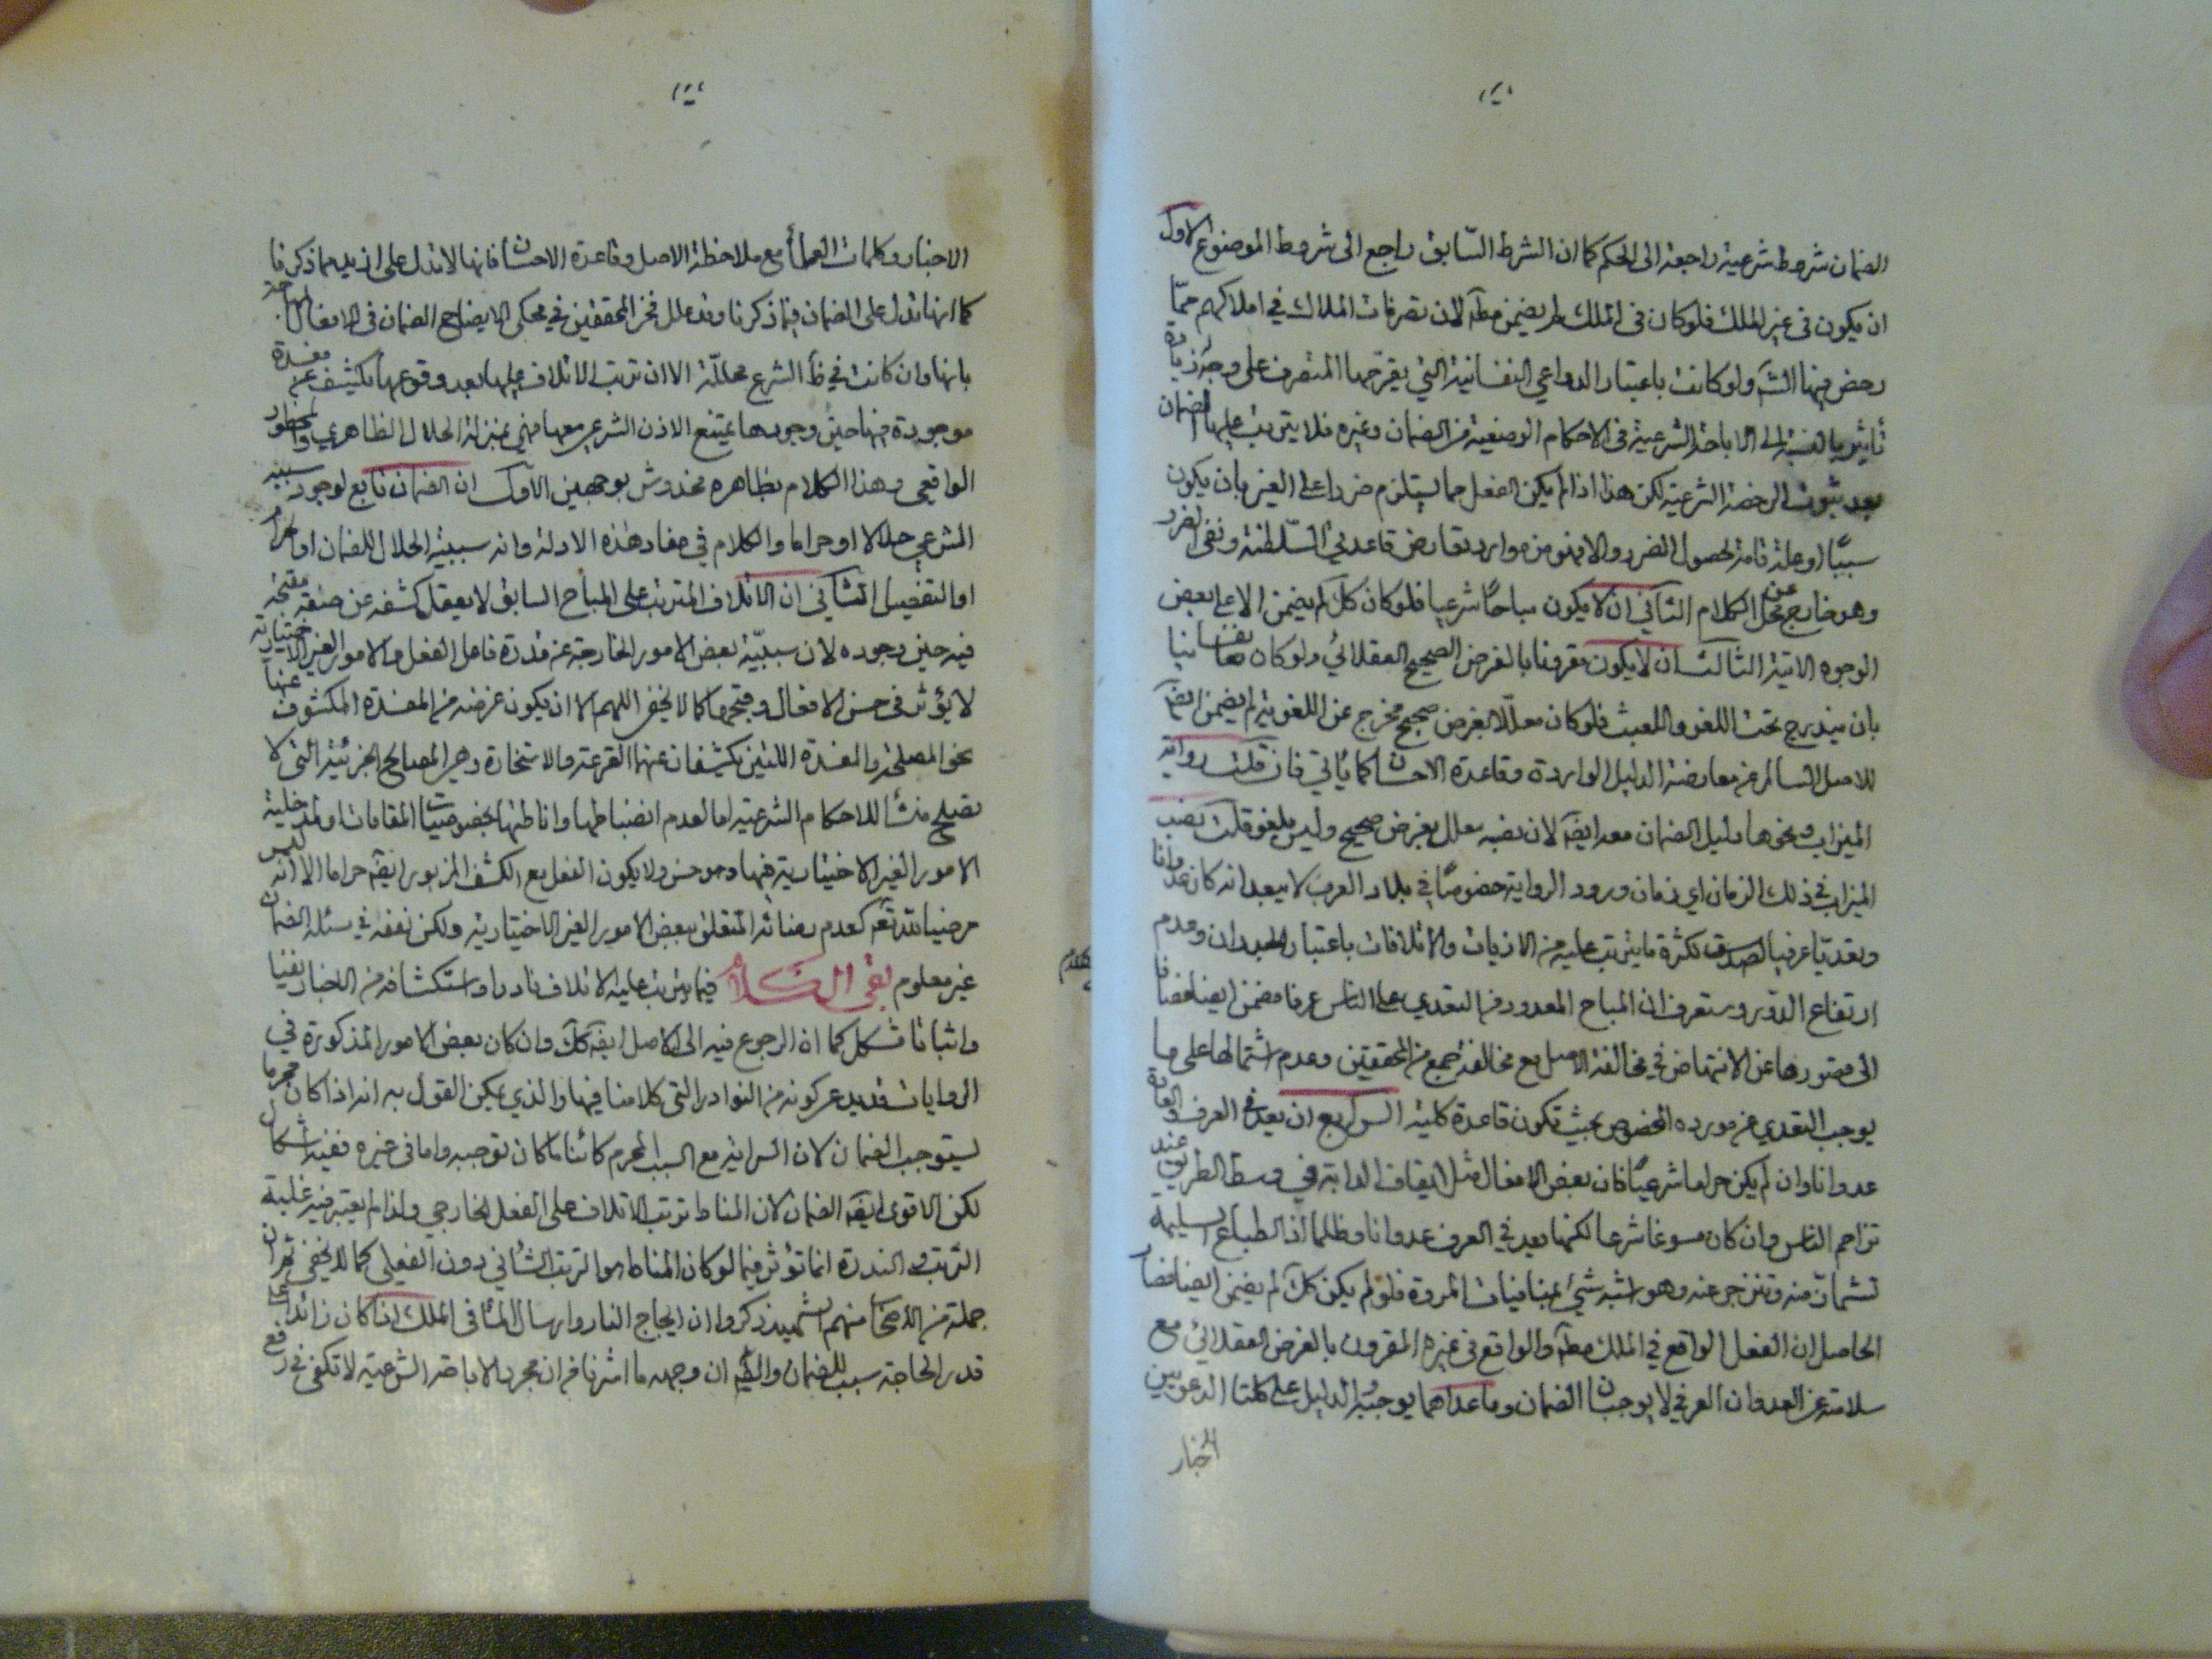 الضمان شروط شرعية راجعة الى الحكم كما ان الشرط السّابق راجع الى شروط الموضوع الاول
ان يكون فى غير الملك فلو كان فى الملك لم يضمن مطلقا لان تصرفات الملاك في املاكهم ممّا
رخص فيها الش ولو كانت باعتبار الدواعي النفسانية التي يقترحها المتصرف على وجه زيادة
تأثير بالنسبة الى الاباحة الشرعية فى الاحكام الوضعية من الضمان وغيره فلا يترتب عليها الضمان
بعد ثبوت الرخصة الشرعية لكن هذا اذا لم يكن الفعل مما يستلزم ضررا على الغير بان يكون
سببًا او علة تامة لحصول الضرر والا فهو من موارد تعارض قاعدتي السّلطنة ونفى الضرر
وهو خارج عن محل الكلام الثاني ان لا يكون مباحًا شرعيا فلو كان كك لم يضمن الا على بعض
الوجوه الاتية الثالث ان لا يكون مقرونا بالغرض الصحيح العقلائي ولو كان نفسانيا
بان يندرج تحت اللغو والعبث فلو كان معللا بغرض صحيح مخرج عن اللغوية لم يضمن ايضا
للاصل السالم عن معارضة الدليل الوارد وقاعدة الاحسان كما يأتي فان قلت رواية
الميزاب ونحوها دليل الضمان معه ايضا لان نصبه معلل بغرض صحيح وليس بلغو قلت نصب
الميزاب في ذلك الزمان اي زمان ورود الرواية خصوصًا في بلاد العرب لا يبعد انه كان عدوانا
وتعديّا عرفيا لصدق كثرة ما يترتب عليه من الاذيات والاتلافات باعتبار الجدران وعدم
ارتفاع الدور وستعرف ان المباح المعدود من التعدي على الناس عرفا مضمن ايضا مضافا
الى قصورها عن الانتهاض في مخالفة الاصل مع مخالفة جمع من المحققين وعدم اشتمالها على ما
يوجب التعدي عن مورده المخصوص بحيث تكون قاعدة كلية الرابع ان يعد في العرف والعادة
عدوانا وان لم يكن حراما شرعيًا فان بعض الافعال مثل ايقاف الدابة في وسط الطريق عند
تزاحم الناس وان كان مسوغا شرعا لكنها يعد في العرف عدوانا وظلما اذ الطباع السليمة
تشمأزّ منه وتنزجر عنه وهو اشبه شيئ بمنافيات المروة فلو لم يكن كك لم يضمن ايضا فصار
الحاصل ان الفعل الواقع في الملك مطلقا والواقع فى غيره المقرون بالغرض العقلائي مع
سلامته عن العدوان العرفي لا يوجبان الضمان وما عداهما يوجبه والدليل على كلتا الدعويين
الاخبار
الاخبار وكلمات العلمأ مع ملاحظة الاصل وقاعدة الاحسان فانها لا تدل على ازيد مما ذكرنا
كما انها تدل على الضمان فيما ذكرنا وقد علل فخر المحققين في محكى الايضاح الضمان فى الافعال المباحة
بانها وان كانت في ظ الشرع محللّة الا ان ترتب الاتلاف عليها بعد وقوعها يكشف عن مفسدة
موجودة فيها حين وجودها يمتنع الاذن الشرعي معها فهي بمنزلة الحلال الظاهري والمحظور
الواقعي وهذا الكلام بظاهره مخدوش بوجهين الاول ان الضمان تابع لوجود سببه
الشرعي حلالا او حراما والكلام في مفاد هذه الادلة وانه سببية الحلال للضمان او الحرام
او التفصيل الثاني ان الاتلاف المترتب على المباح السابق لا يعقل كشفه عن صفة مقبحة
فيه حين وجوده لان سببيّة بعض الامور الخارجة عن قدرة فاعل الفعل والامور الغير الاختيارية
لا يؤثر فى حسن الافعال وقبحها كما لا يخفى اللهم الا ان يكون غرضه من المفسدة المكشوف عنها
نحو المصلحة والمفسدة اللتين يكشفان عنهما القرعة والاستخارة وهي المصالح الجزئية التى لا
تصلح منشأ للاحكام الشرعية اما لعدم انضباطها واناطتها بخصوصيات المقامات او لمدخلية
الامور الغير الاختيارية فيها وهو حسن ولا يكون الفعل مع الكشف المزبور ايضا حراما الا انه ليس
مرضيا لله تعم كعدم رضائه المتعلق ببعض الامور الغير الاختيارية ولكن نفعه في مسئلة الضمان
غير معلوم بقى الكلام فيما يترتب عليه الاتلاف نادرا واستكشافه من الاخبار نفيا
واثباتا مشكل كما ان الرجوع فيه الى الاصل ايضا كك وان كان بعض الامور المذكورة في
الروايات قد يدعى كونه من النوادر التى كلامنا فيها والذي يمكن القول به انه اذا كان محرما
يستوجب الضمان لان السراية مع السبب المحرم كائنا ما كان توجبه واما فى غيره ففيه اشكال
لكن الاقوى ايضا الضمان لان المناط ترتب الاتلاف على الفعل الخارجي ولذا لم يعتبر فيه غلبة
الترتب والندرة انما تؤثر فيما لو كان المناط هو الترتب الشأني دون الفعلي كما لا يخفى ثم ان
جملة من الاصحاب منهم الشهيد ذكروا ان ايجاج النار وارسال المأ فى الملك اذا كان زائدا على
قدر الحاجة سبب للضمان والظ ان وجهه ما اشرنا من ان مجرد الاباحة الشرعية لا تكفى في رفع